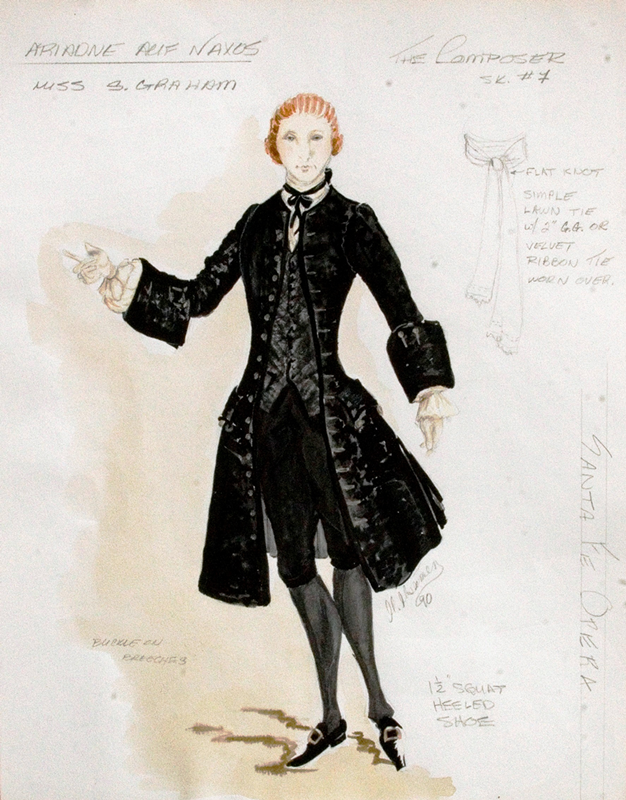 ARIADNE AUF NAXOS
MISS S. GRAHAM
THE COMPOSER
SK. #7
FLAT KNOT
SIMPLE
LAWN TIE
W/ 2" G.G. OR
VELVET
RIBBON TIE
WORN OVER.
SANTA FE OPERA
90
BUCKLE ON
BREECHES
1½" SQUAT
HEELED
SHOE